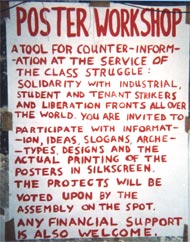 POSTER WORKSHOP
A TOOL FOR COUNTER-INFORM-
ATION AT THE SERVICE OF
THE CLASS STRUGGLE:
SOLIDARITY WITH INDUSTRIAL,
STUDENT AND TENANT STRIKERS
AND LIBERATION FRONTS ALL OVER
THE WORLD. YOU ARE INVITED TO
PARTICIPATE WITH INFORMAT-
-ION, IDEAS, SLOGANS, ARCHE-
-TYPES, DESIGNS AND THE
ACTUAL PRINTING OF THE
POSTERS IN SILKSCREEN.
THE PROJECTS WILL BE
VOTED UPON BY THE
ASSEMBLY ON THE SPOT.
ANY FINANCIAL SUPPORT
IS ALSO WELCOME.